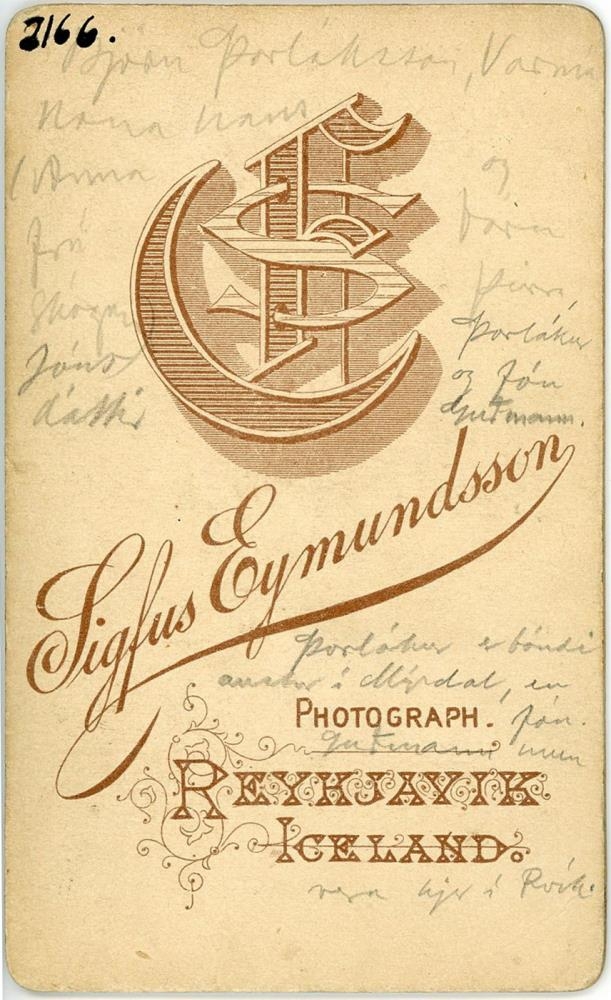 2166.
Björn Þorláksson, Varmá
Kona hans
Anna og
frá börn
þeirra
Jóns Þorlákur
dóttir og Jón
Guðmann.
Sigfus Eymundsson
Þorlákur er bóndi
austur í Mýrdal, en
PHOTOGRAPH. Jón.
Guðmann mun
REYKJAVIK
ICELAND.
vera hjer í Rvík.